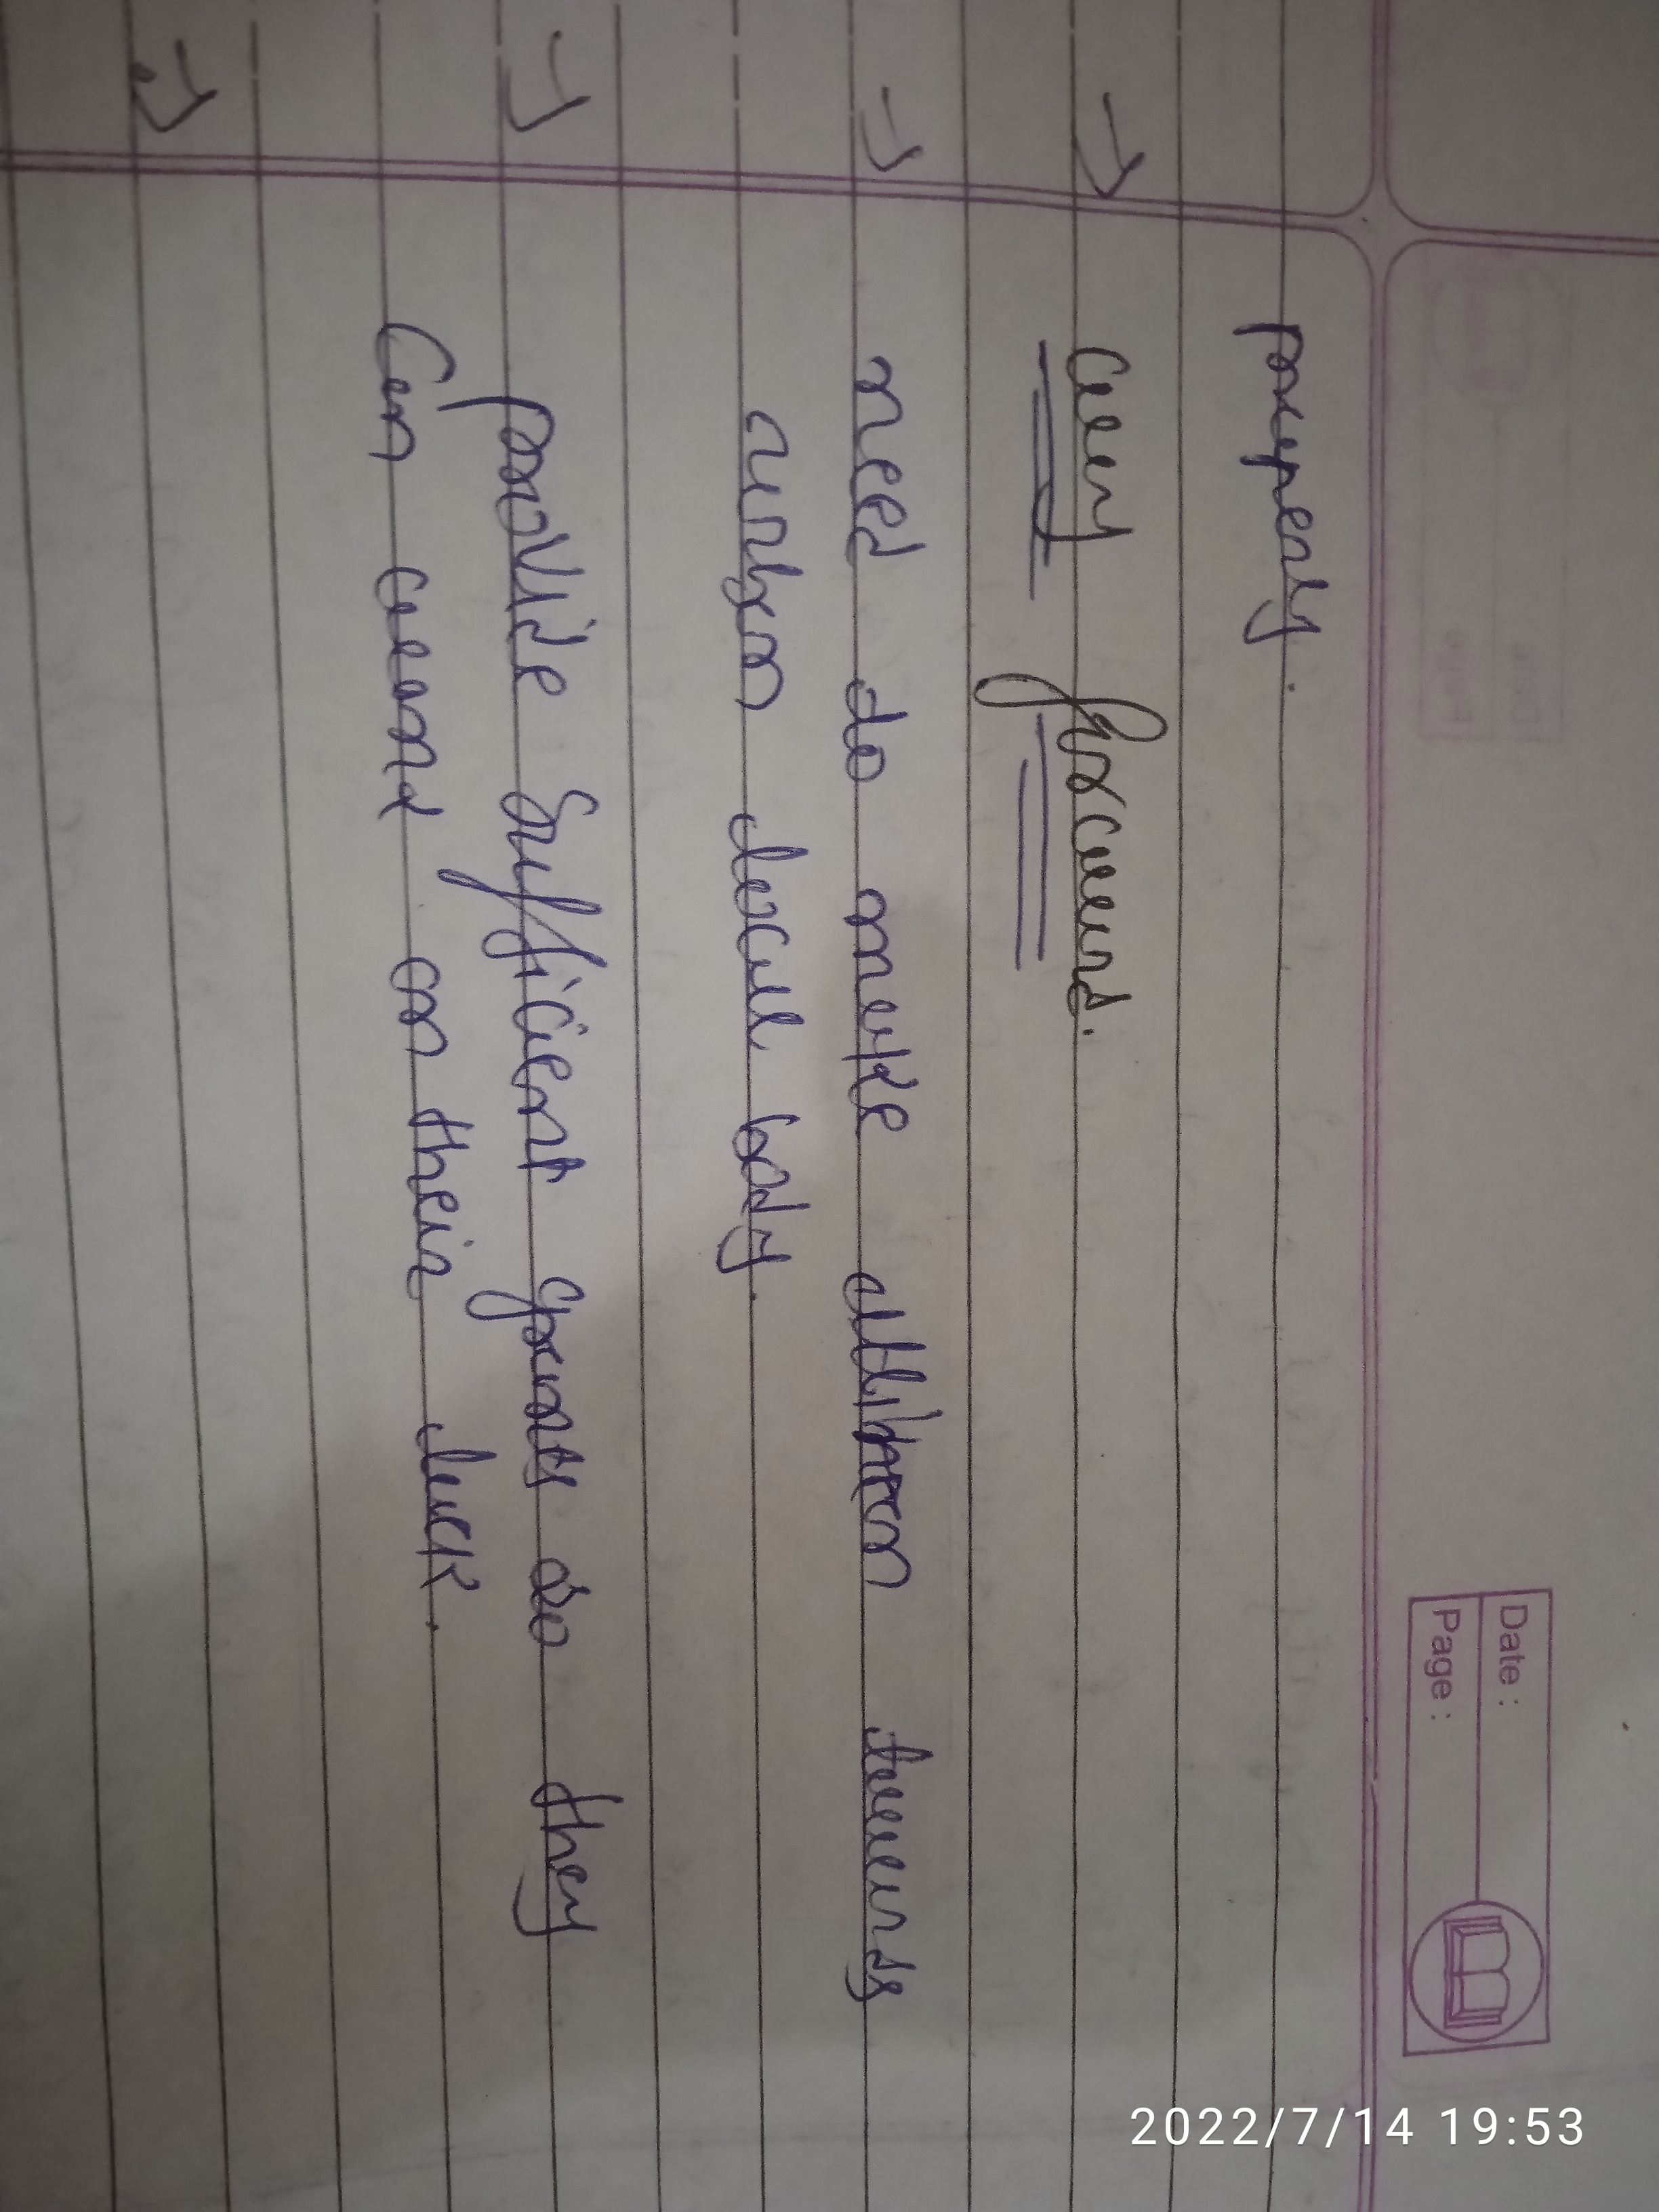 Date :
Page :
properly.
way forward.
need to make attition towards
urban local body.
provide sufficient grants so they
can work on their luck.
2022/7/14 19:53